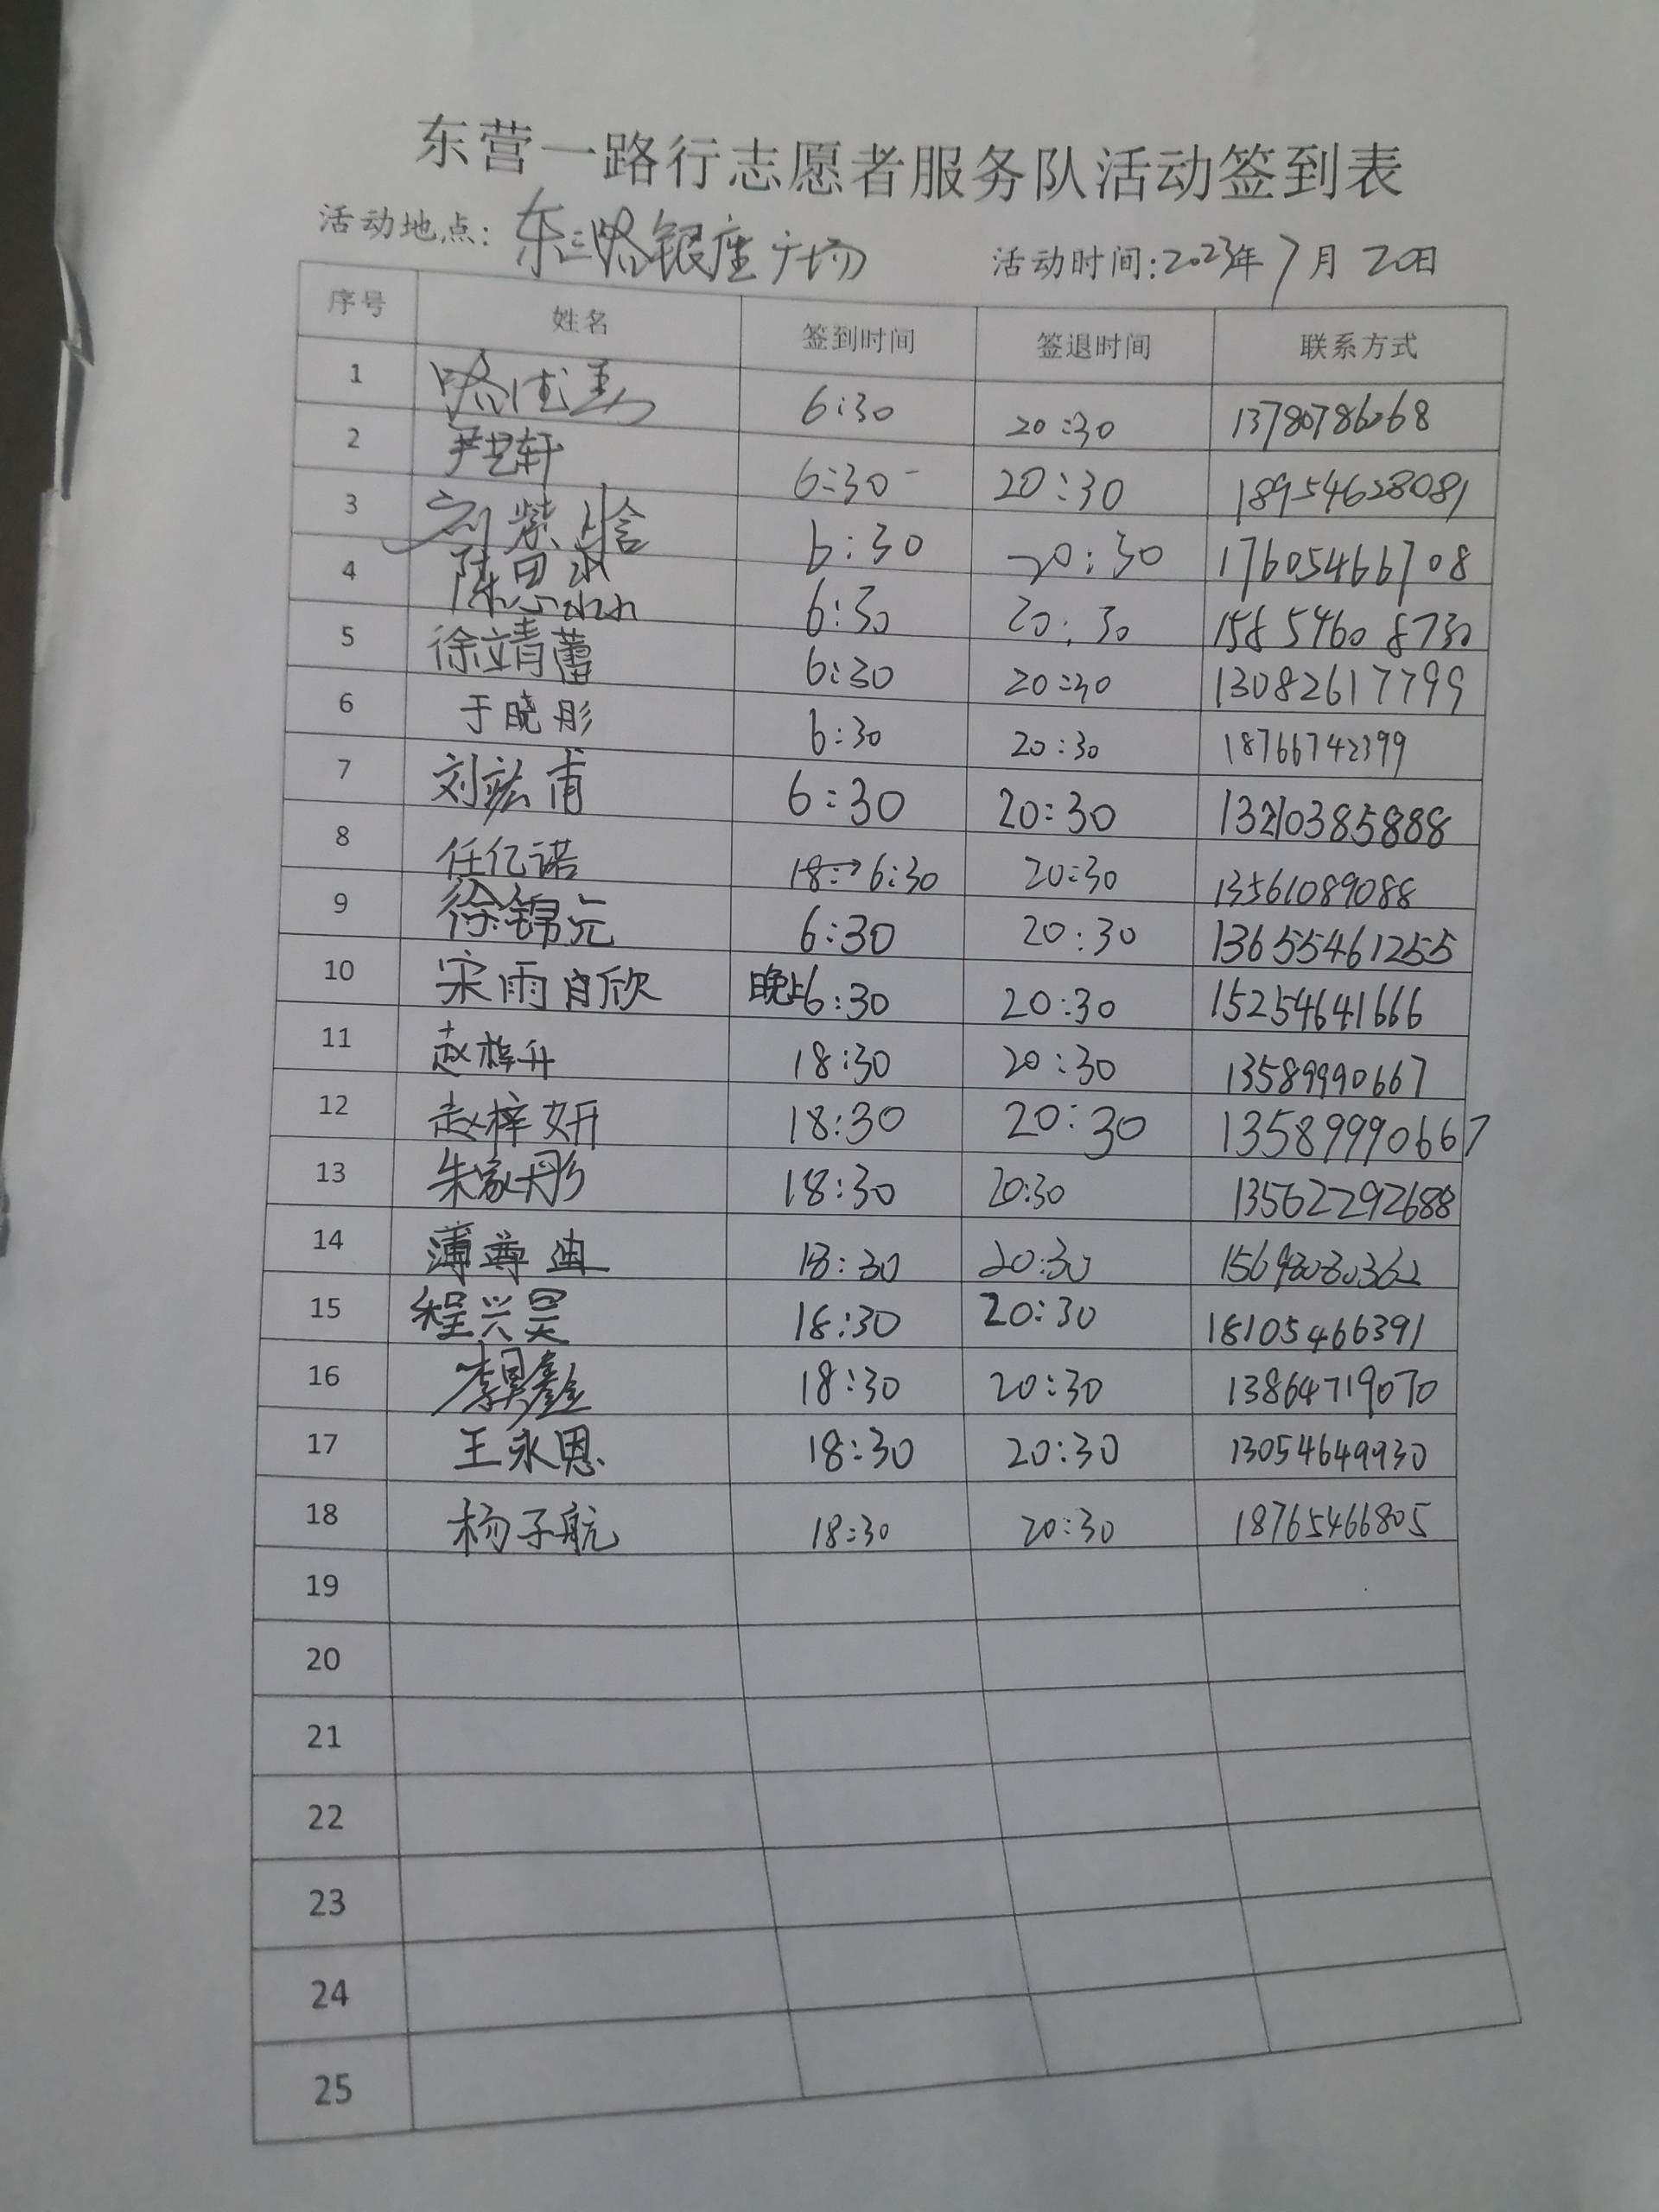 东营一路行志愿者服务队活动签到表
活动地点: 东三路银座广场 活动时间:2023年7月20日
序号 姓名 签到时间 签退时间 联系方式
1 6:30 20:30 13780786268
2 尹艺轩 6:30 20:30 18954628081
3 刘紫晗 6:30 20:30 17605466708
4 6:30 20:30 15854608730
5 徐立靖蕾 6:30 20:30 13082617799
6 于晓彤 6:30 20:30 18766742399
7 刘竑甫 6:30 20:30 13210385888
8 任亿诺 18:→6:30 20:30 13561089088
9 徐锦元 6:30 20:30 13655461255
10 宋雨欣 晚上6:30 20:30 15254641666
11 赵梓升 18:30 20:30 13589990667
12 赵梓妍 18:30 20:30 13589990667
13 朱家彤 18:30 20:30 13562292688
14 薄尊迪 18:30 20:30 15698080362
15 程兴昊 18:30 20:30 18105466391
16 李昊鑫 18:30 20:30 13864719070
17 王永恩 18:30 20:30 13054649930
18 杨子航 18:30 20:30 18765466805
19
20
21
22
23
24
25